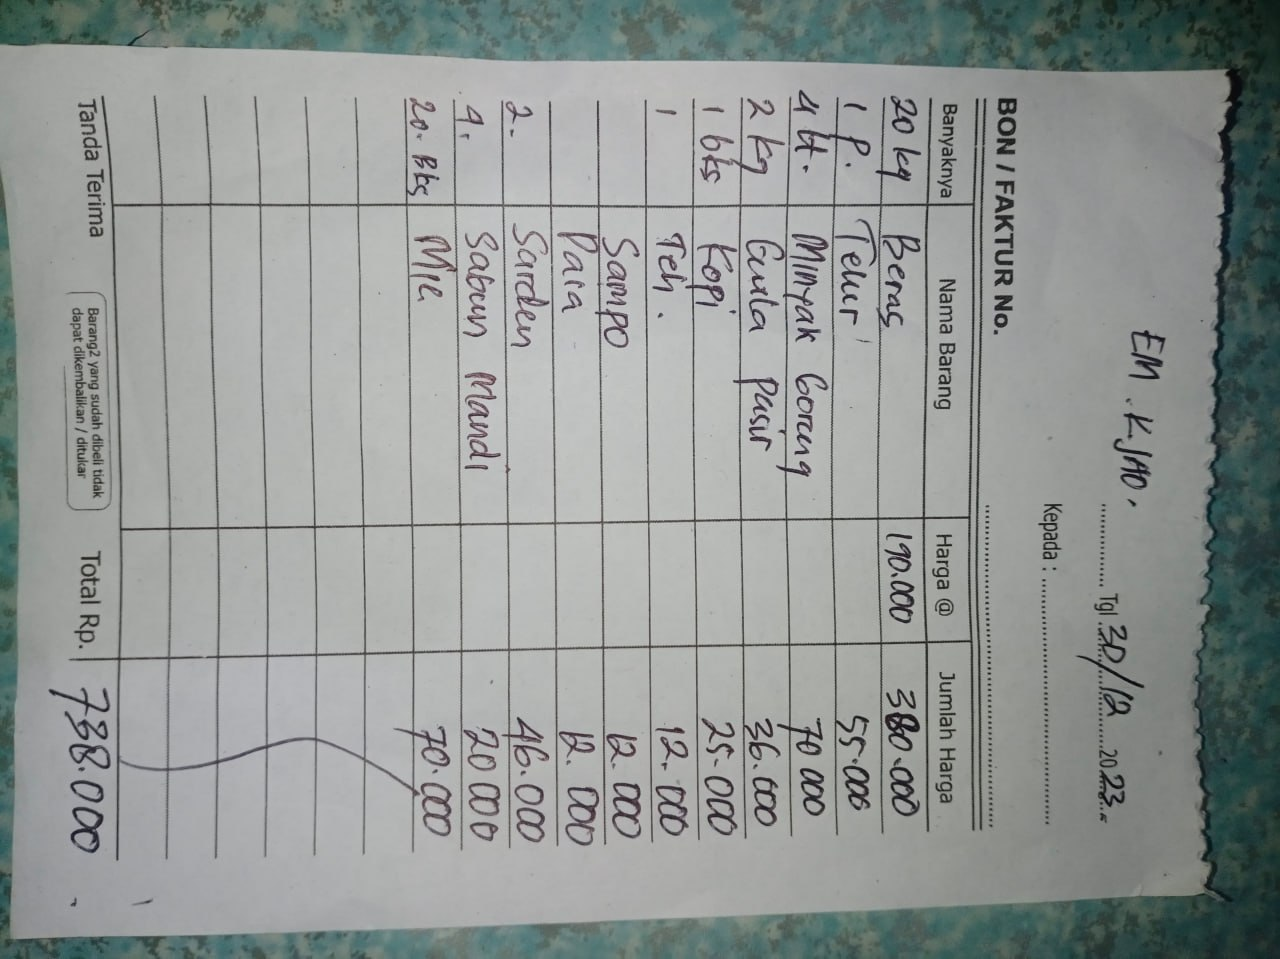 EM. KJAO.
Tgl 30/12 2023
Kepada :
BON / FAKTUR No.
Banyaknya Nama Barang Harga @ Jumlah Harga
20 kg Beras 190.000 380.000
1 P. Telur 55.000
4 lt. Minyak Goreng 70 000
2 kg Gula pasir 36.000
1 bks Kopi 25.000
1 Teh. 12.000
Sampo 12.000
Daia 12.000
2. Sarden 46.000
4. Sabun Mandi 20 000
20. Bks Mie 70.000
Tanda Terima
Barang2 yang sudah dibeli tidak
dapat dikembalikan / ditukar
Total Rp. 738.000